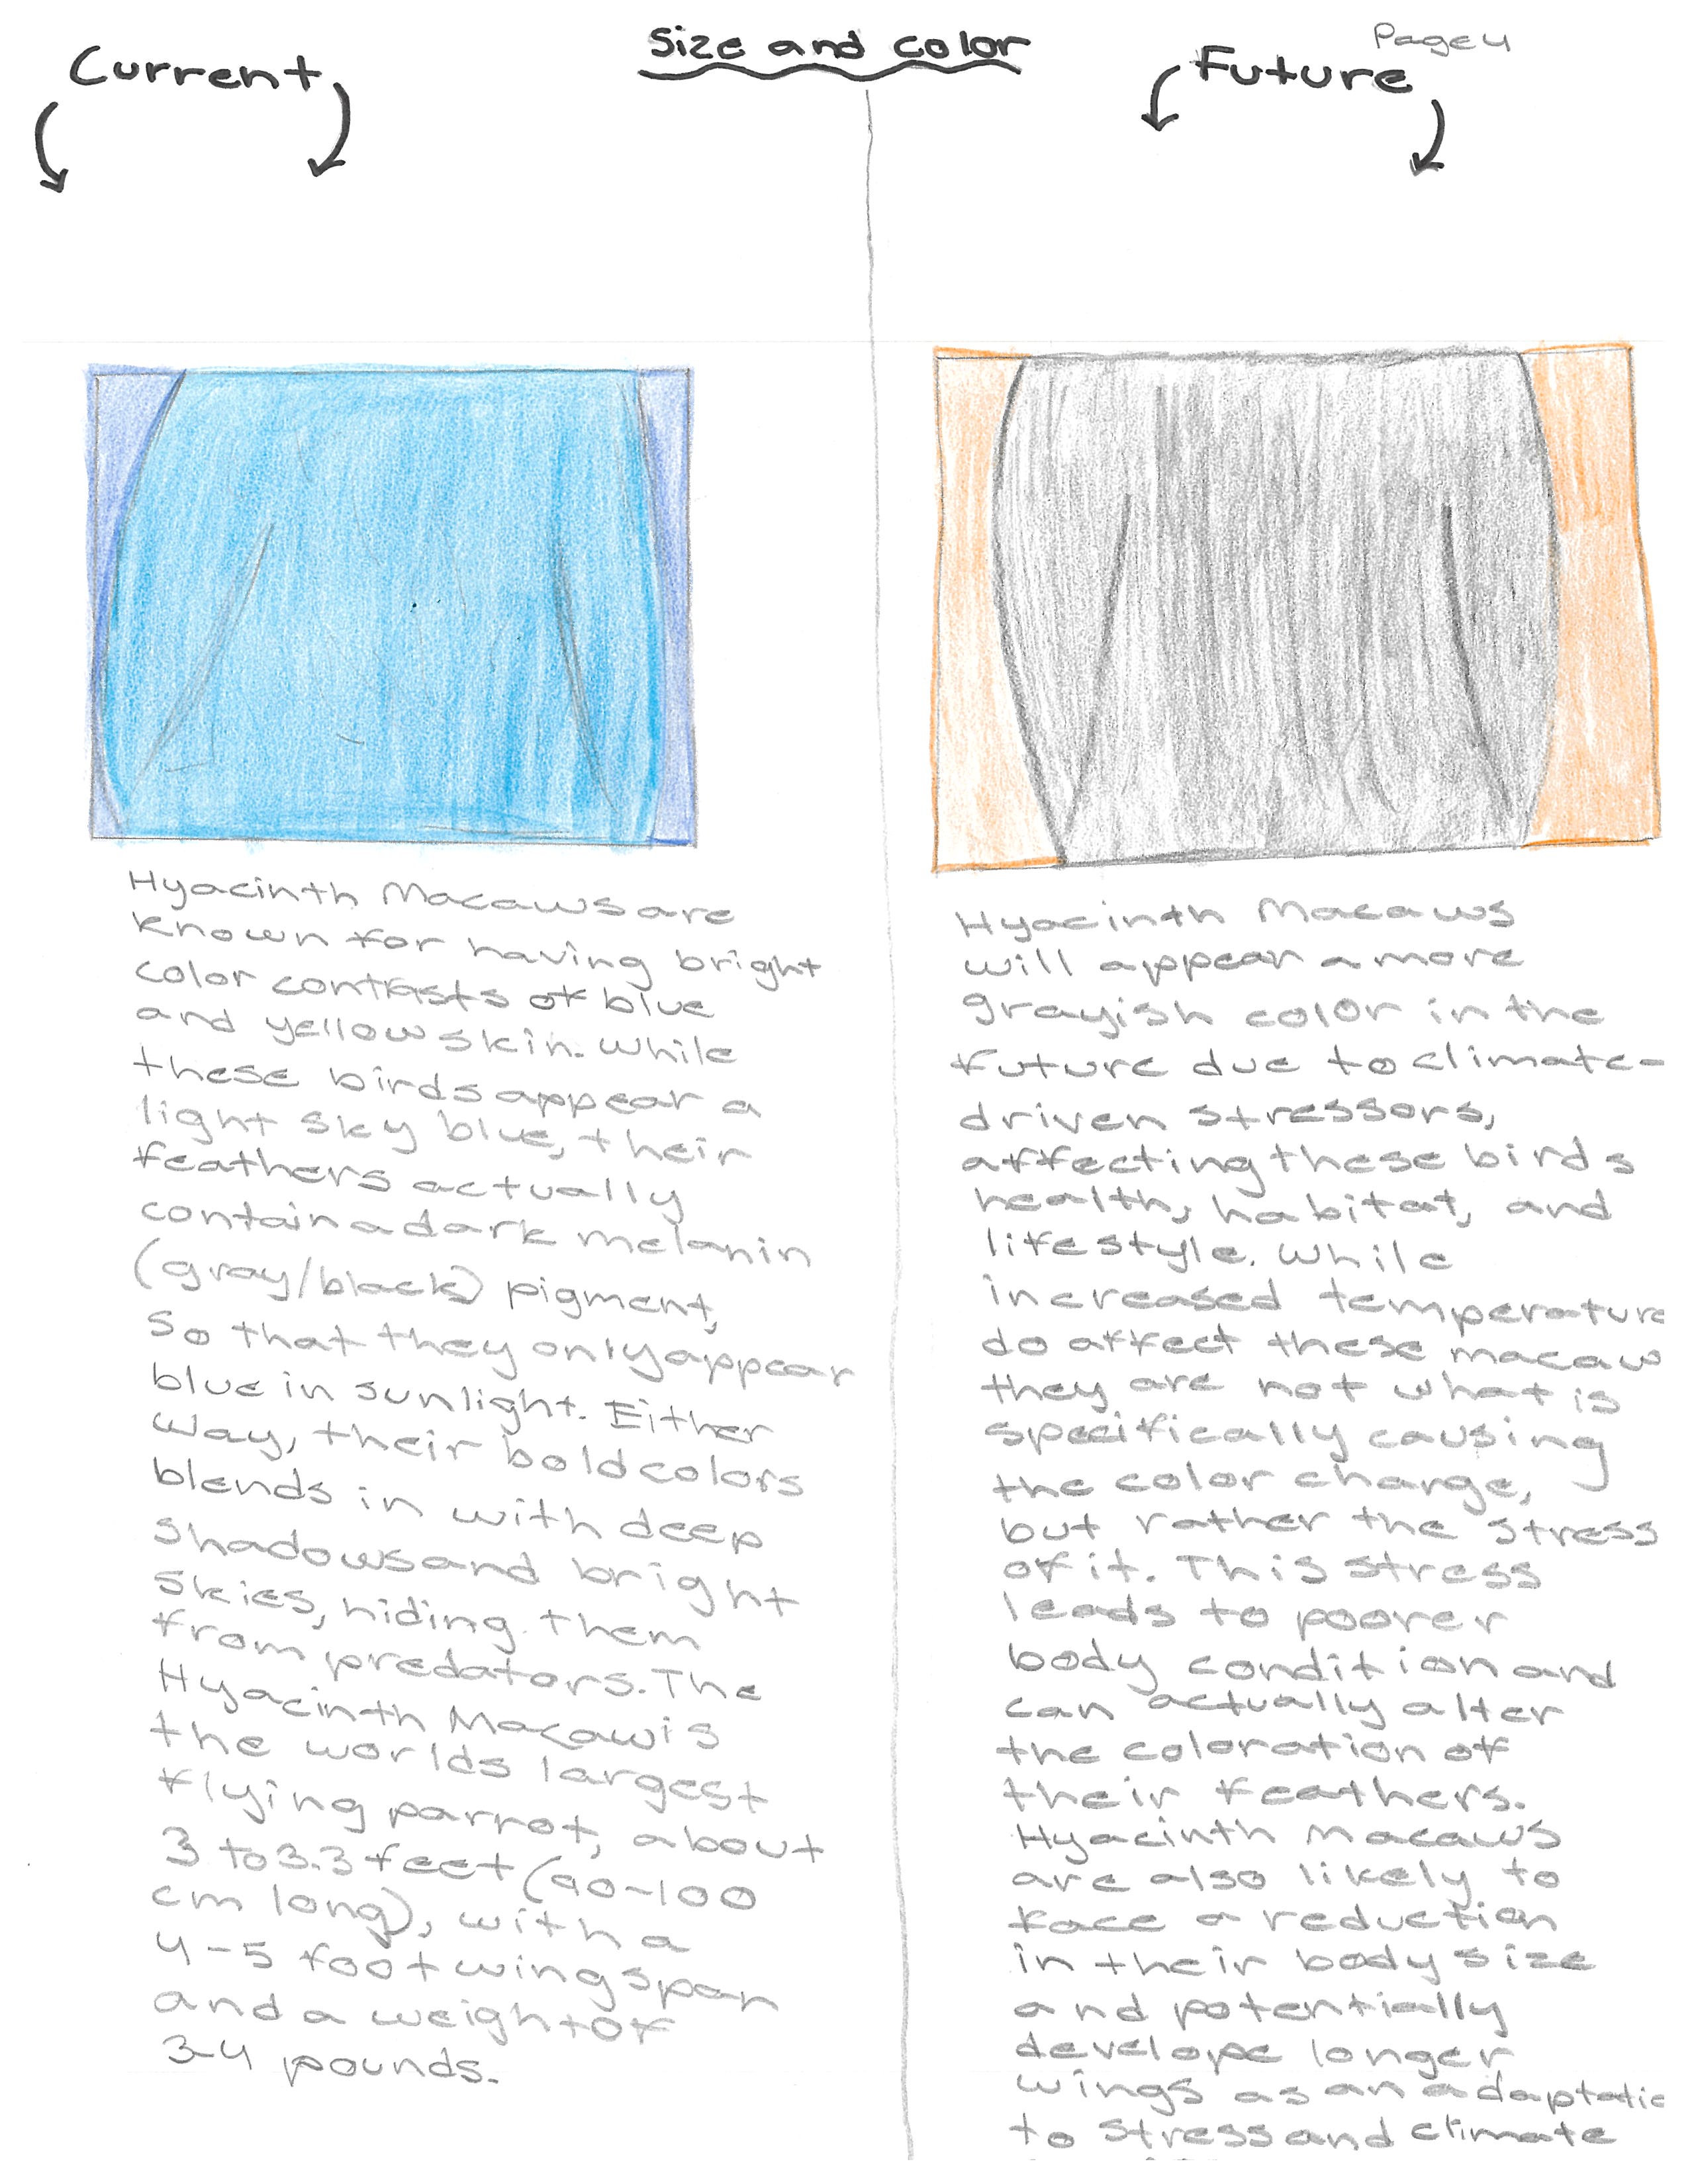 Size and color
Page 4
Current
Future
Hyacinth Macaws are
known for having bright
color contrasts of blue
and yellow skin. While
these birds appear a
light sky blue, their
feathers actually
contain a dark melanin
(gray/black) pigment,
so that they only appear
blue in sunlight. Either
way, their bold colors
blends in with deep
shadows and bright
skies, hiding them
from predators. The
Hyacinth Macaw is
the worlds largest
flying parrot, about
3 to 3.3 feet (90-100
cm long), with a
4-5 foot wingspan
and a weight of
3-4 pounds.
Hyacinth Macaws
will appear a more
grayish color in the
future due to climate-
driven stressors,
affecting these birds
health, habitat, and
lifestyle. While
increased temperature
do affect these macaw
they are not what is
specifically causing
the color change,
but rather the stress
of it. This stress
leads to poorer
body condition and
can actually alter
the coloration of
their feathers.
Hyacinth Macaws
are also likely to
face a reduction
in their body size
and potentially
develope longer
wings as an adaptatio
to stress and climate